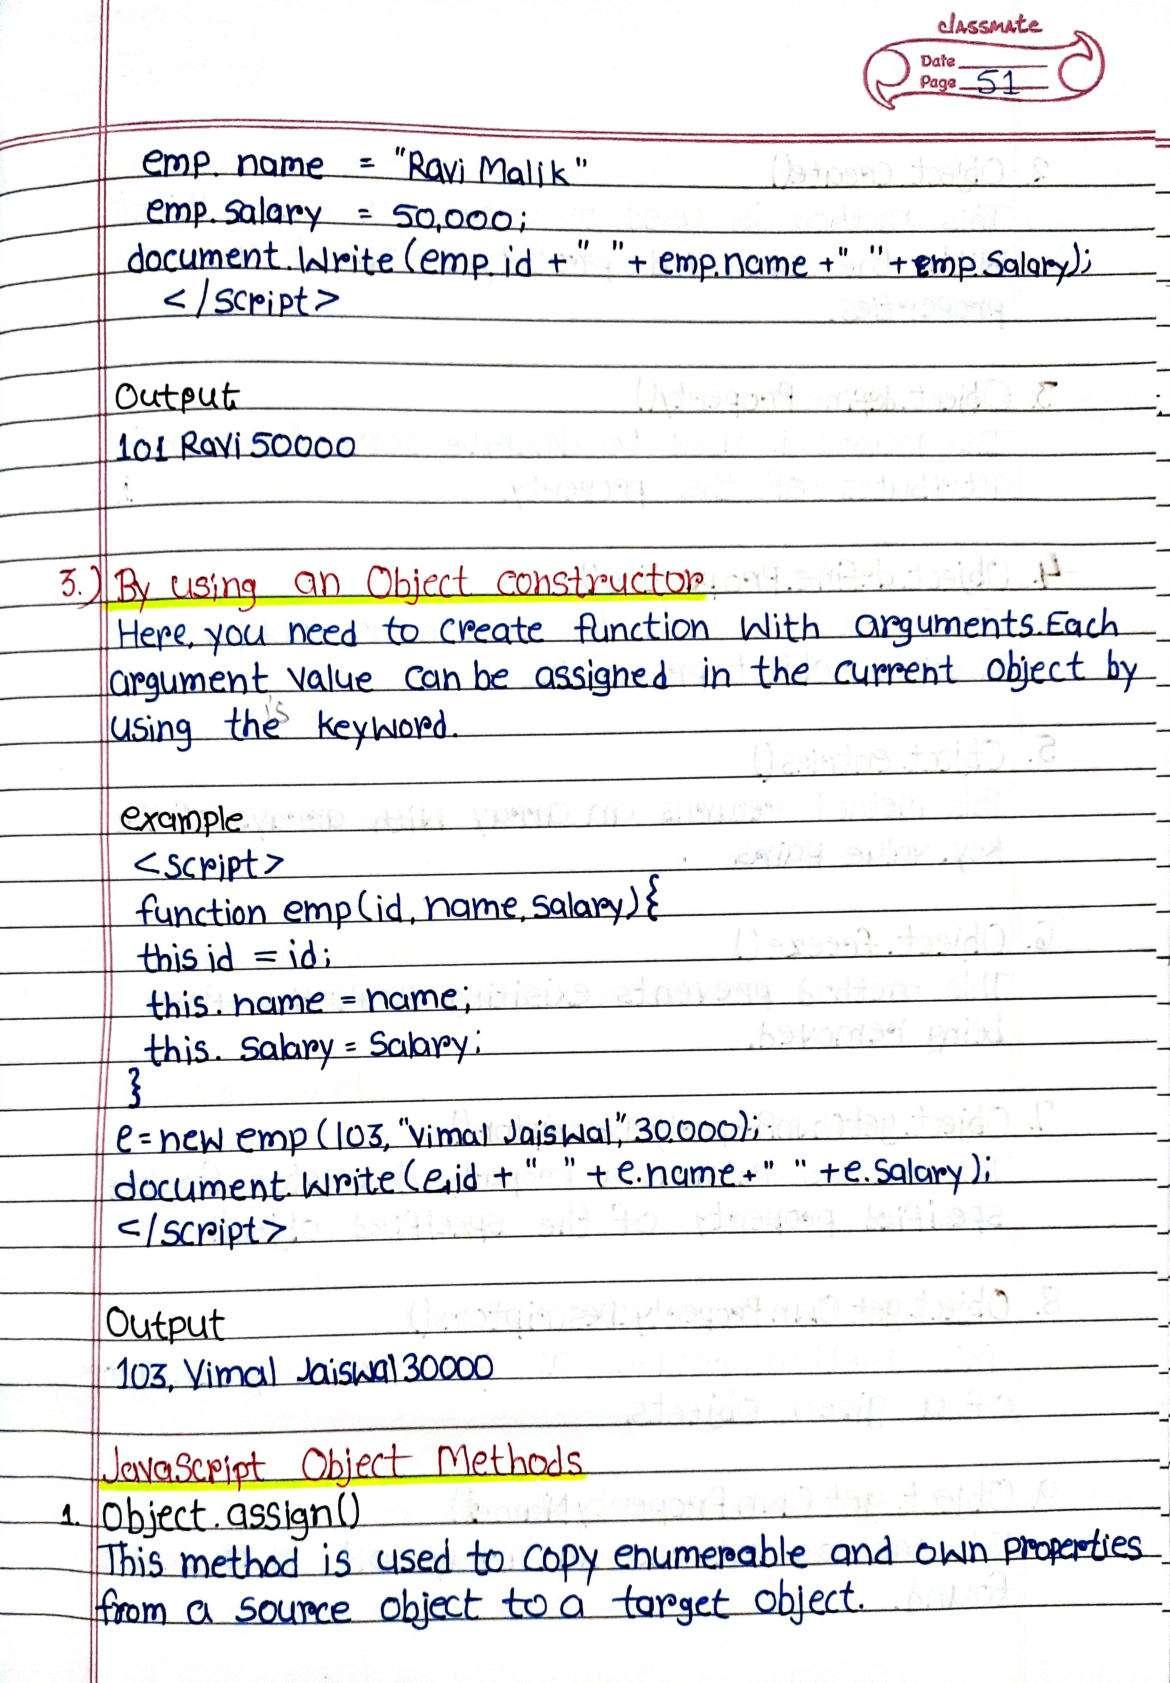 classmate
Date
Page 51
emp. name = "Ravi Malik"
emp. salary = 50,000;
document.Write (emp.id + " " + emp.name + " " + emp.Salary);
</script>
Output
101 Ravi 50000
3.) By using an Object constructor
Here, you need to create function with arguments. Each
argument value can be assigned in the current object by
using the is keyword.
example
<script>
function emp(id, name, salary){
this id = id;
this. name = name;
this. salary = Salary;
}
e = new emp (103, "Vimal Jaiswal", 30,000);
document. Write (e.id + " " + e.name + " " + e.Salary);
</script>
Output
103, Vimal Jaiswal 30000
JavaScript Object Methods
1. Object.assign()
This method is used to copy enumerable and own properties
from a source object to a target object.